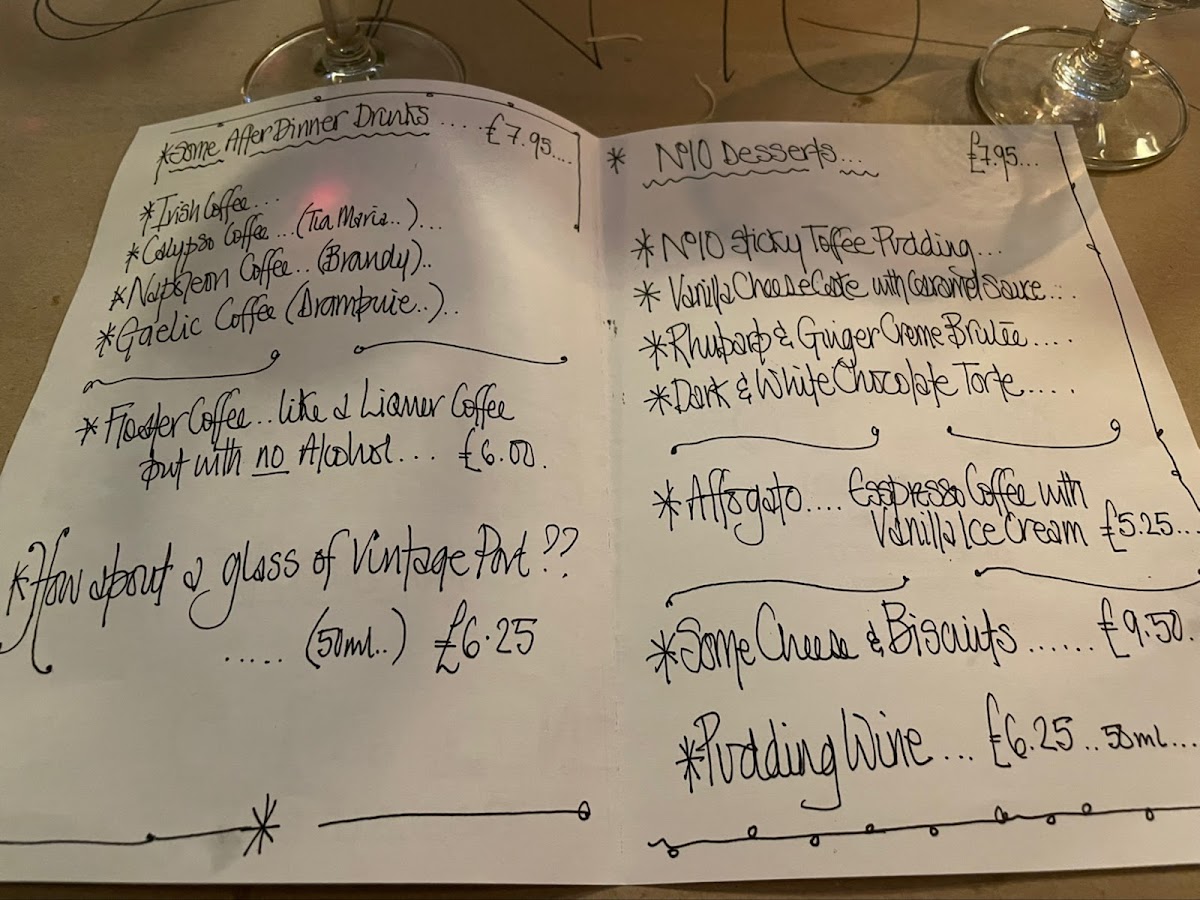 *Some After Dinner Drinks .... £7.95....
*Irish Coffee...
*Calypso Coffee ...(Tia Maria..)...
*Napoleon Coffee.. (Brandy)..
*Gaelic Coffee (Drambuie..)..
*Floater Coffee...like a Liqueur Coffee
but with no Alcohol... £6.00.
*How about a glass of Vintage Port??
..... (50ml..) £6.25
* Nº10 Desserts... £7.95...
*Nº10 Sticky Toffee Pudding...
* Vanilla Cheese Cake with Caramel Sauce....
*Rhubarb & Ginger Creme Brulée....
*Dark & White Chocolate Torte.....
*Affogato.... Esspresso Coffee with
Vanilla Ice Cream £5.25...
*Some Cheese & Biscuits ...... £9.50.
*Pudding Wine... £6.25..50ml...